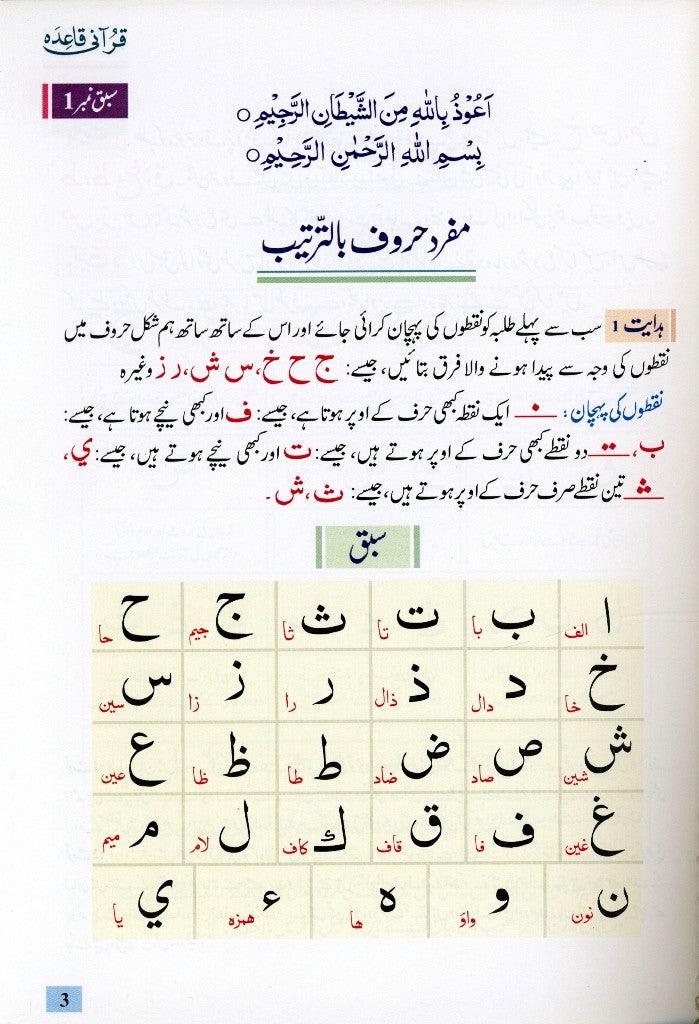 قرآنی قاعدہ
سبق نمبر 1
اَعُوْذُ بِاللّٰهِ مِنَ الشَّيْطَانِ الرَّجِيْمِ ○
بِسْمِ اللّٰهِ الرَّحْمٰنِ الرَّحِيْمِ ○
مفرد حروف بالتّرتیب
ہدایت 1 سب سے پہلے طلبہ کو نقطوں کی پہچان کرائی جائے اور اس کے ساتھ ساتھ ہم شکل حروف میں
نقطوں کی وجہ سے پیدا ہونے والا فرق بتائیں، جیسے: ج ح خ، س ش، ر ز وغیرہ
نقطوں کی پہچان: ـنـ ایک نقطہ کبھی حرف کے اوپر ہوتا ہے، جیسے: ف اور کبھی نیچے ہوتا ہے، جیسے:
ب، ـتـ دو نقطے کبھی حرف کے اوپر ہوتے ہیں، جیسے: ت اور کبھی نیچے ہوتے ہیں، جیسے: ي،
ـثـ تین نقطے صرف حرف کے اوپر ہوتے ہیں، جیسے: ث، ش۔
سبق
ا الف ب با ت تا ث ثا ج جیم ح حا
خ خا د دال ذ ذال ر را ز زا س سین
ش شین ص صاد ض ضاد ط طا ظ ظا ع عین
غ غین ف فا ق قاف ك کاف ل لام م میم
ن نون و واؤ ه ها ء همزه ي یا
3